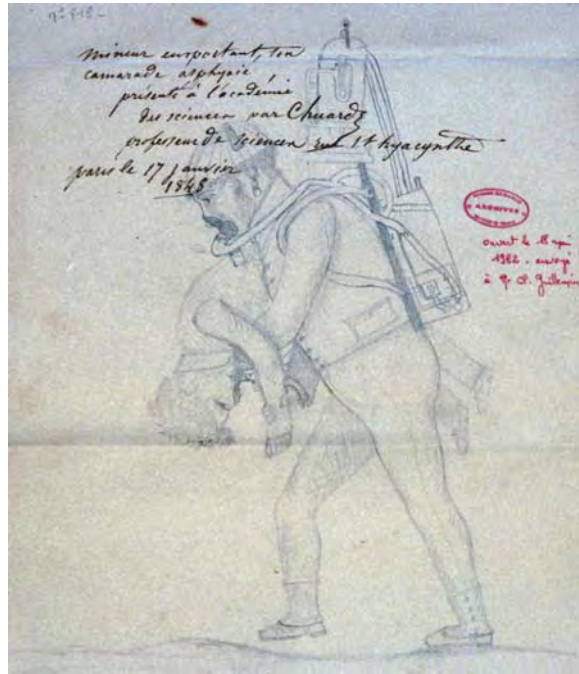 n° 818
mineur emportant, son
camarade asphyxié
présenté à l'académie
des sciences par Chuard
professeur de sciences rue St hyacynthe
paris le 17 janvier
1848
ARCHIVES
ouvert le 18 mai
1982. envoyé
à